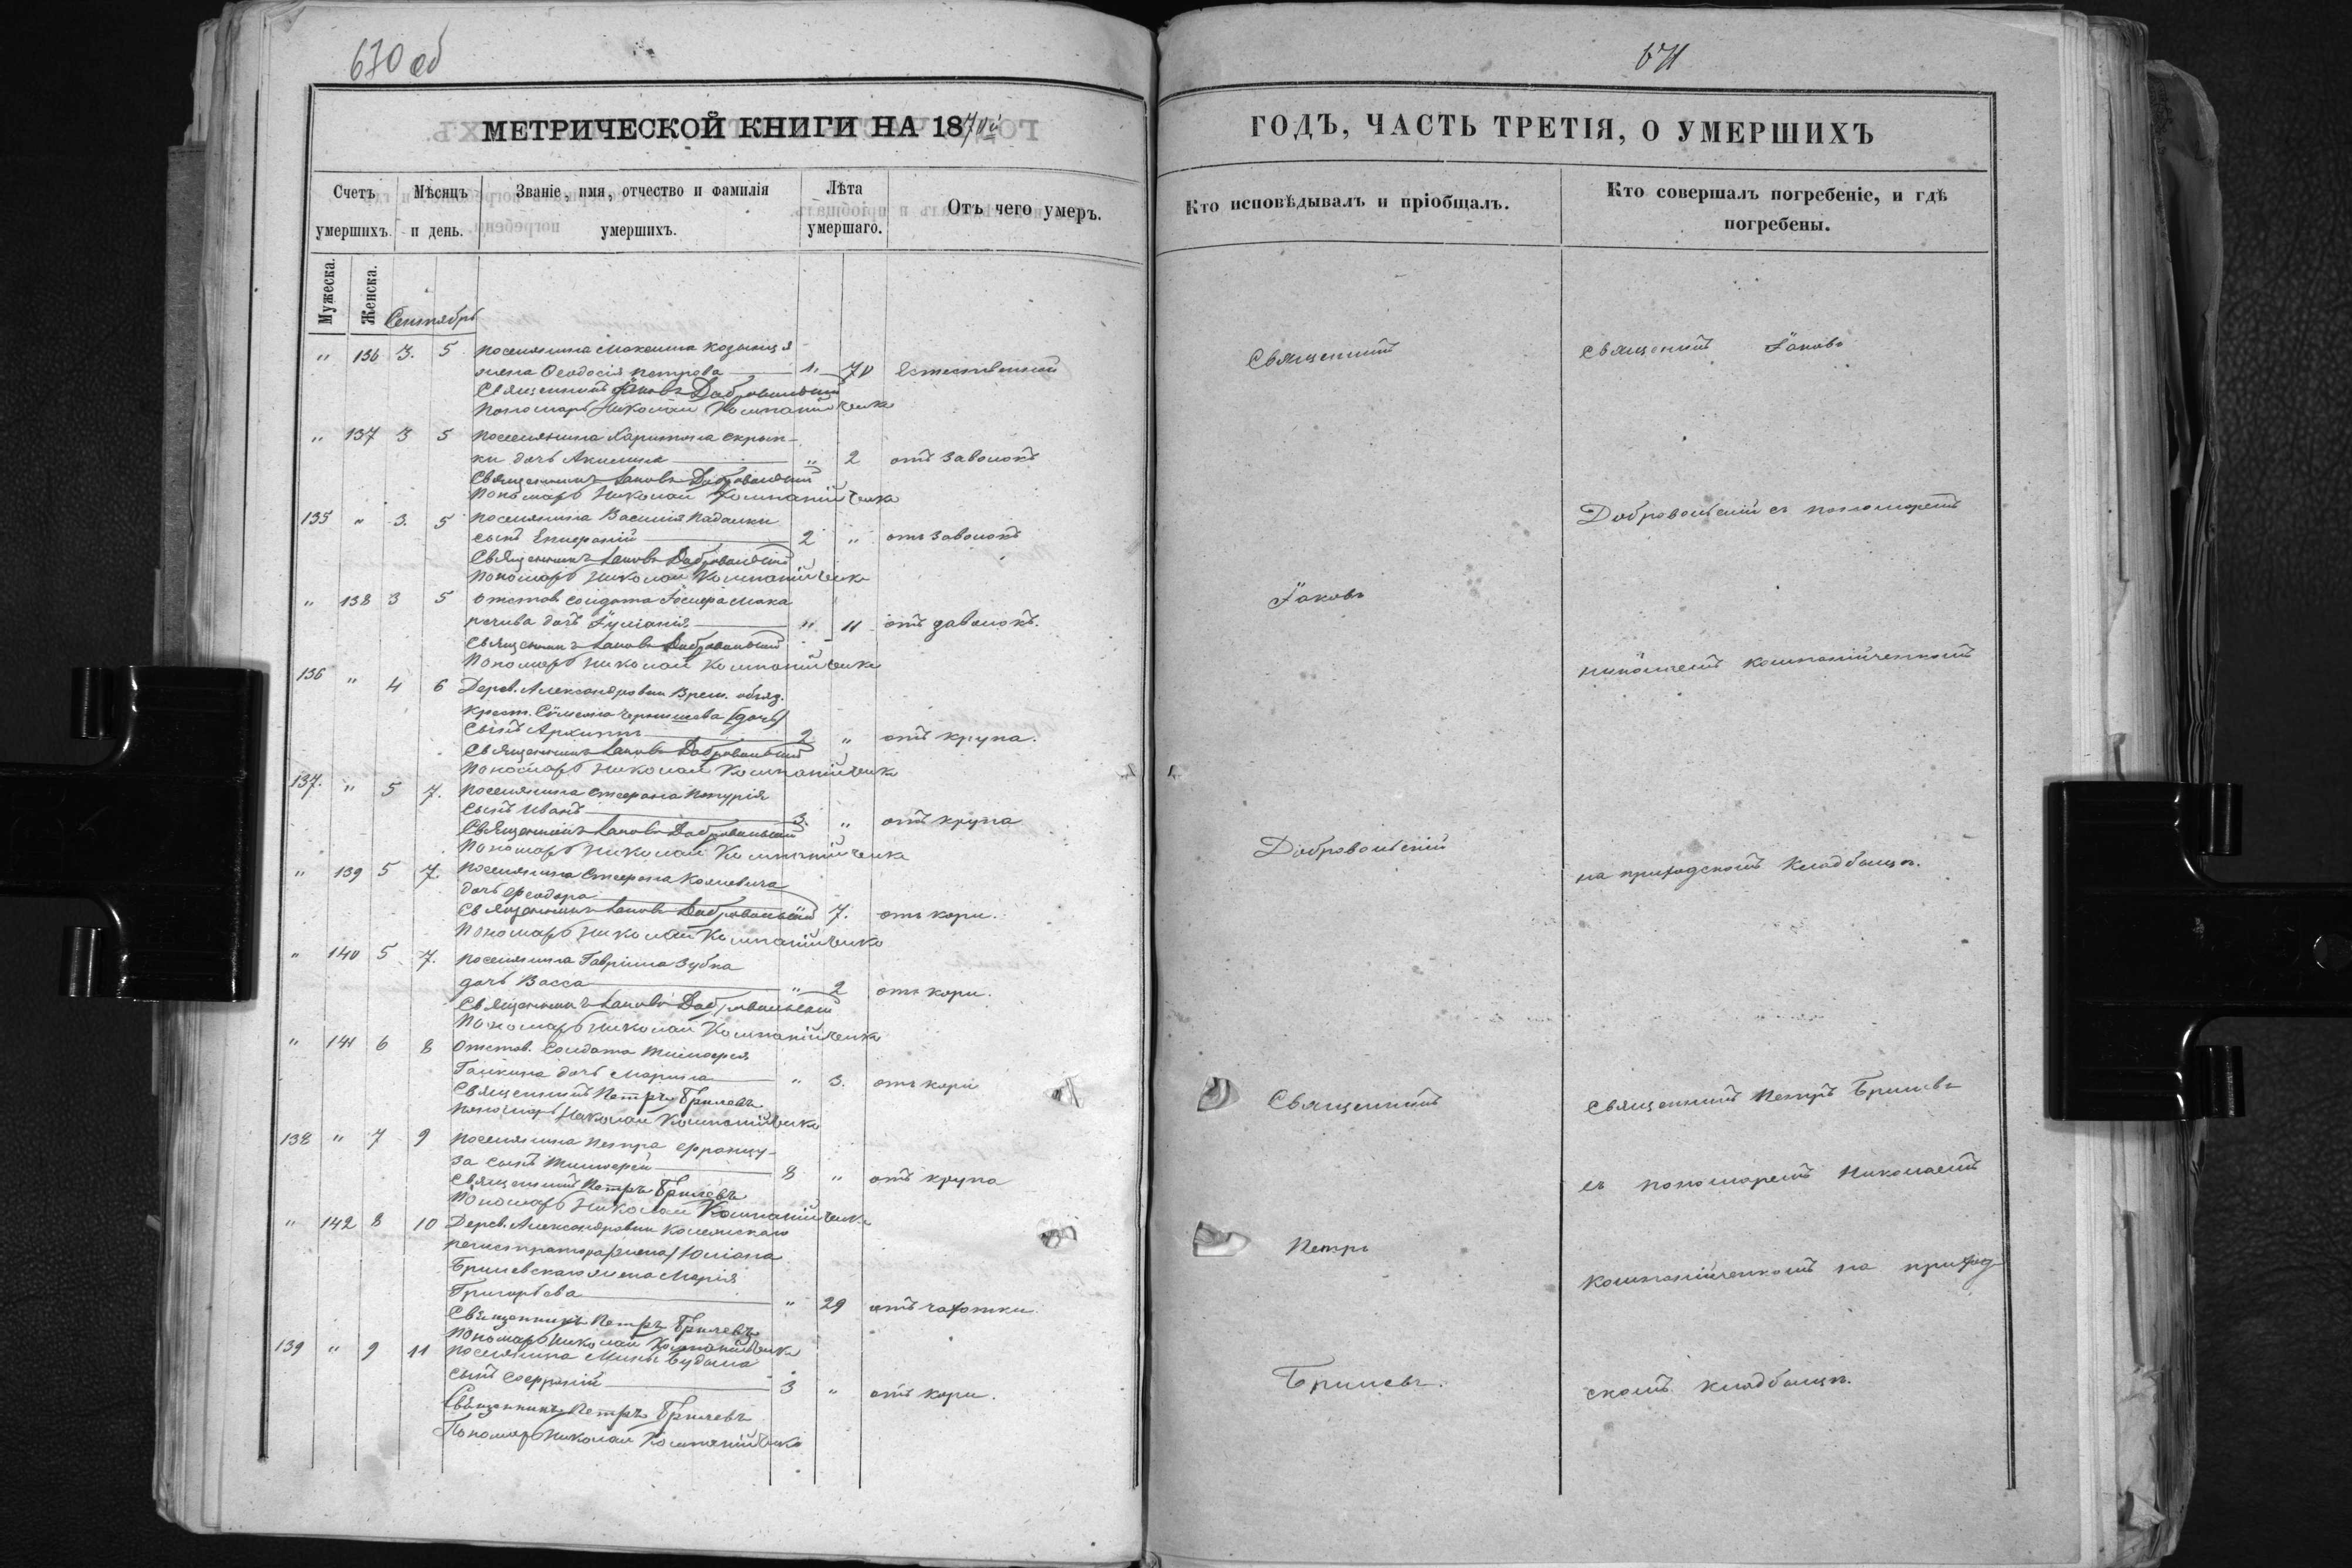 630 об
МЕТРИЧЕСКОЙ КНИГИ НА 1870й
Счетъ умершихъ.
Мѣсяцъ и день.
Званіе, имя, отчество и фамилія умершихъ.
Лѣта умершаго.
Отъ чего умеръ.
Мужеска.
Женска.
Сентябрь
" 136 3. 5 Поселянина Максима
жена Ѳеодосія Петрова " 70 Естественной
Священникъ Іаковъ Добровольскій
Пономарь Николай Компанійченко
" 137 3 5 Поселянина Харитона Скрып-
ки дочь Акилина " 2 отъ заволокъ
Священникъ Іаковъ Добровольскій
Пономарь Николай Компанійченко
135 " 3. 5 Поселянина Василія Падалки
сынъ Епифаній 2 " отъ заволокъ
Священникъ Іаковъ Добровольскій
Пономарь Николай Компанійченко
" 138 3 5 Отстав. солдата Мака
дочь Іуліанія " 11 отъ заволокъ.
Священникъ Іаковъ Добровольскій
Пономарь Николай Компанійченко
136 " 4 6 Дерев. Александровки Врем. обяз.
крест. Сѵмеона Чернышева (дочь)
сынъ Архиппъ 2 " отъ крупа.
Священникъ Іаковъ Добровольскій
Пономарь Николай Компанійченко
137. " 5 7. Поселянина Стефана
сынъ Иванъ 3. " отъ крупа
Священникъ Іаковъ Добровольскій
Пономарь Николай Компанійченко
" 139 5 7. Поселянина Стефана
дочь Ѳеодора 7. отъ кори.
Священникъ Іаковъ Добровольскій
Пономарь Николай Компанійченко
" 140 5 7. Поселянина Гавріила Зубка
дочь Васса " 2 отъ кори.
Священникъ Іаковъ Добровольскій
Пономарь Николай Компанійченко
" 141 6 8 Отстав. Солдата Тимофея
Галкина дочь Марина " 3. отъ кори
Священникъ Петръ Брилевъ
Пономарь Николай Компанійченко
138 " 7 9 Поселянина Петра Францу-
за сынъ Тимофей 8 " отъ крупа
Священникъ Петръ Брилевъ
Пономарь Николай Компанійченко
" 142 8 10 Дерев. Александровки Колежскаго
регистратора (жена) Юліана
жена Марія
Григорьева " 29 отъ чахотки.
Священникъ Петръ Брилевъ
Пономарь Николай Компанійченко
139 " 9 11 Поселянина Мины
сынъ Софроній 3 " отъ кори.
Священникъ Петръ Брилевъ
Пономарь Николай Компанійченко
671
ГОДЪ, ЧАСТЬ ТРЕТІЯ, О УМЕРШИХЪ
Кто исповѣдывалъ и пріобщалъ.
Кто совершалъ погребеніе, и гдѣ погребены.
Священникъ
Іаковъ
Добровольскій
Священникъ
Петръ
Брилевъ.
Священникъ Іаковъ
Добровольскій съ пономаремъ
Николаемъ Компанійченкомъ
на приходскомъ кладбищѣ.
Священникъ Петръ Брилевъ
съ пономаремъ Николаемъ
Компанійченкомъ на приход-
скомъ кладбищѣ.